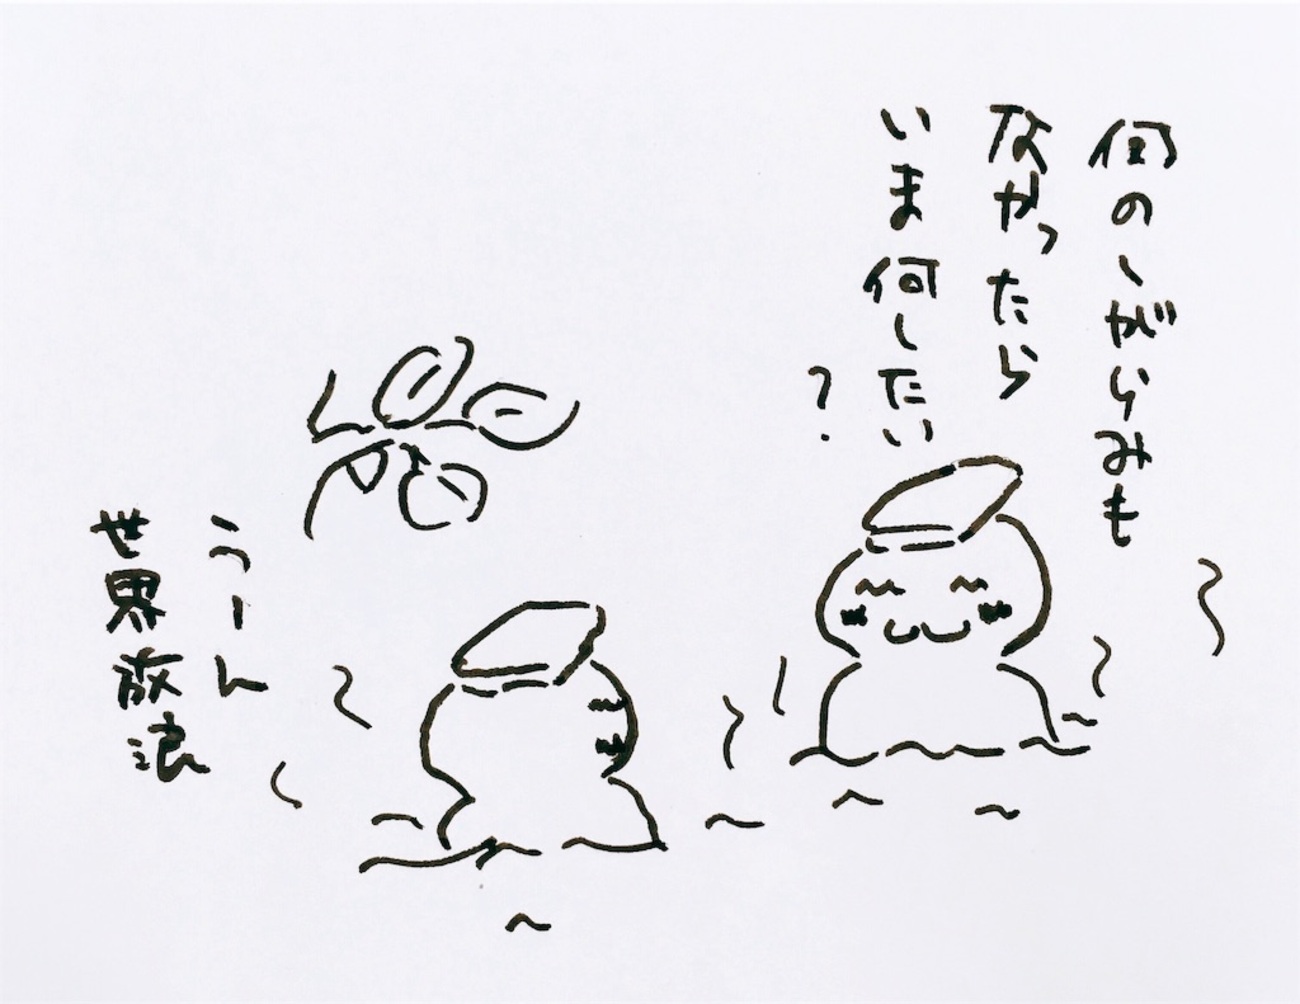 何のしがらみも
なかったら
いま何したい
?
うーん
世界放浪